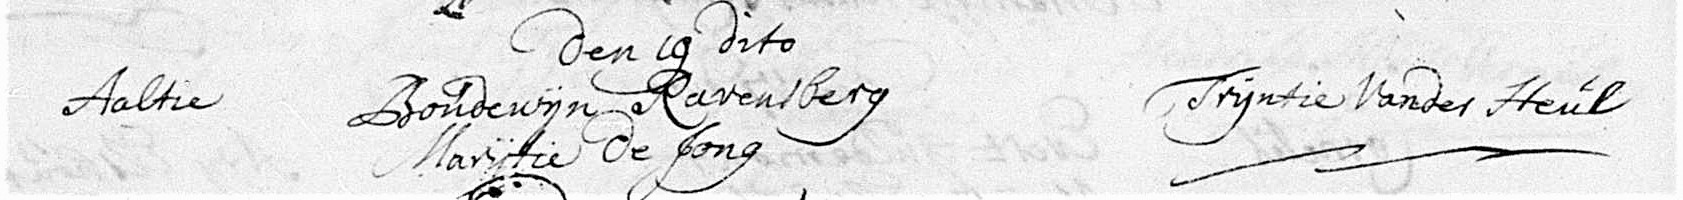 Den 19 dito
Aaltie Boudewijn Ravensberg Trijntie Vander Heul
Marijtie De Jong